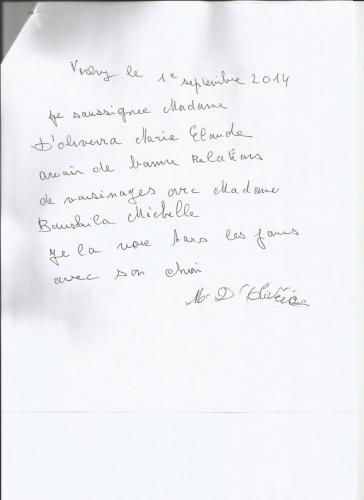 Vitry le 1e septembre 2014
je saussignee Madame
D'oliveira Marie Claude
avoir de bonnu Relations
de voisinages avec Madame
Michelle
je la voie tous les jours
avec son chien
Mr D'Oliveira